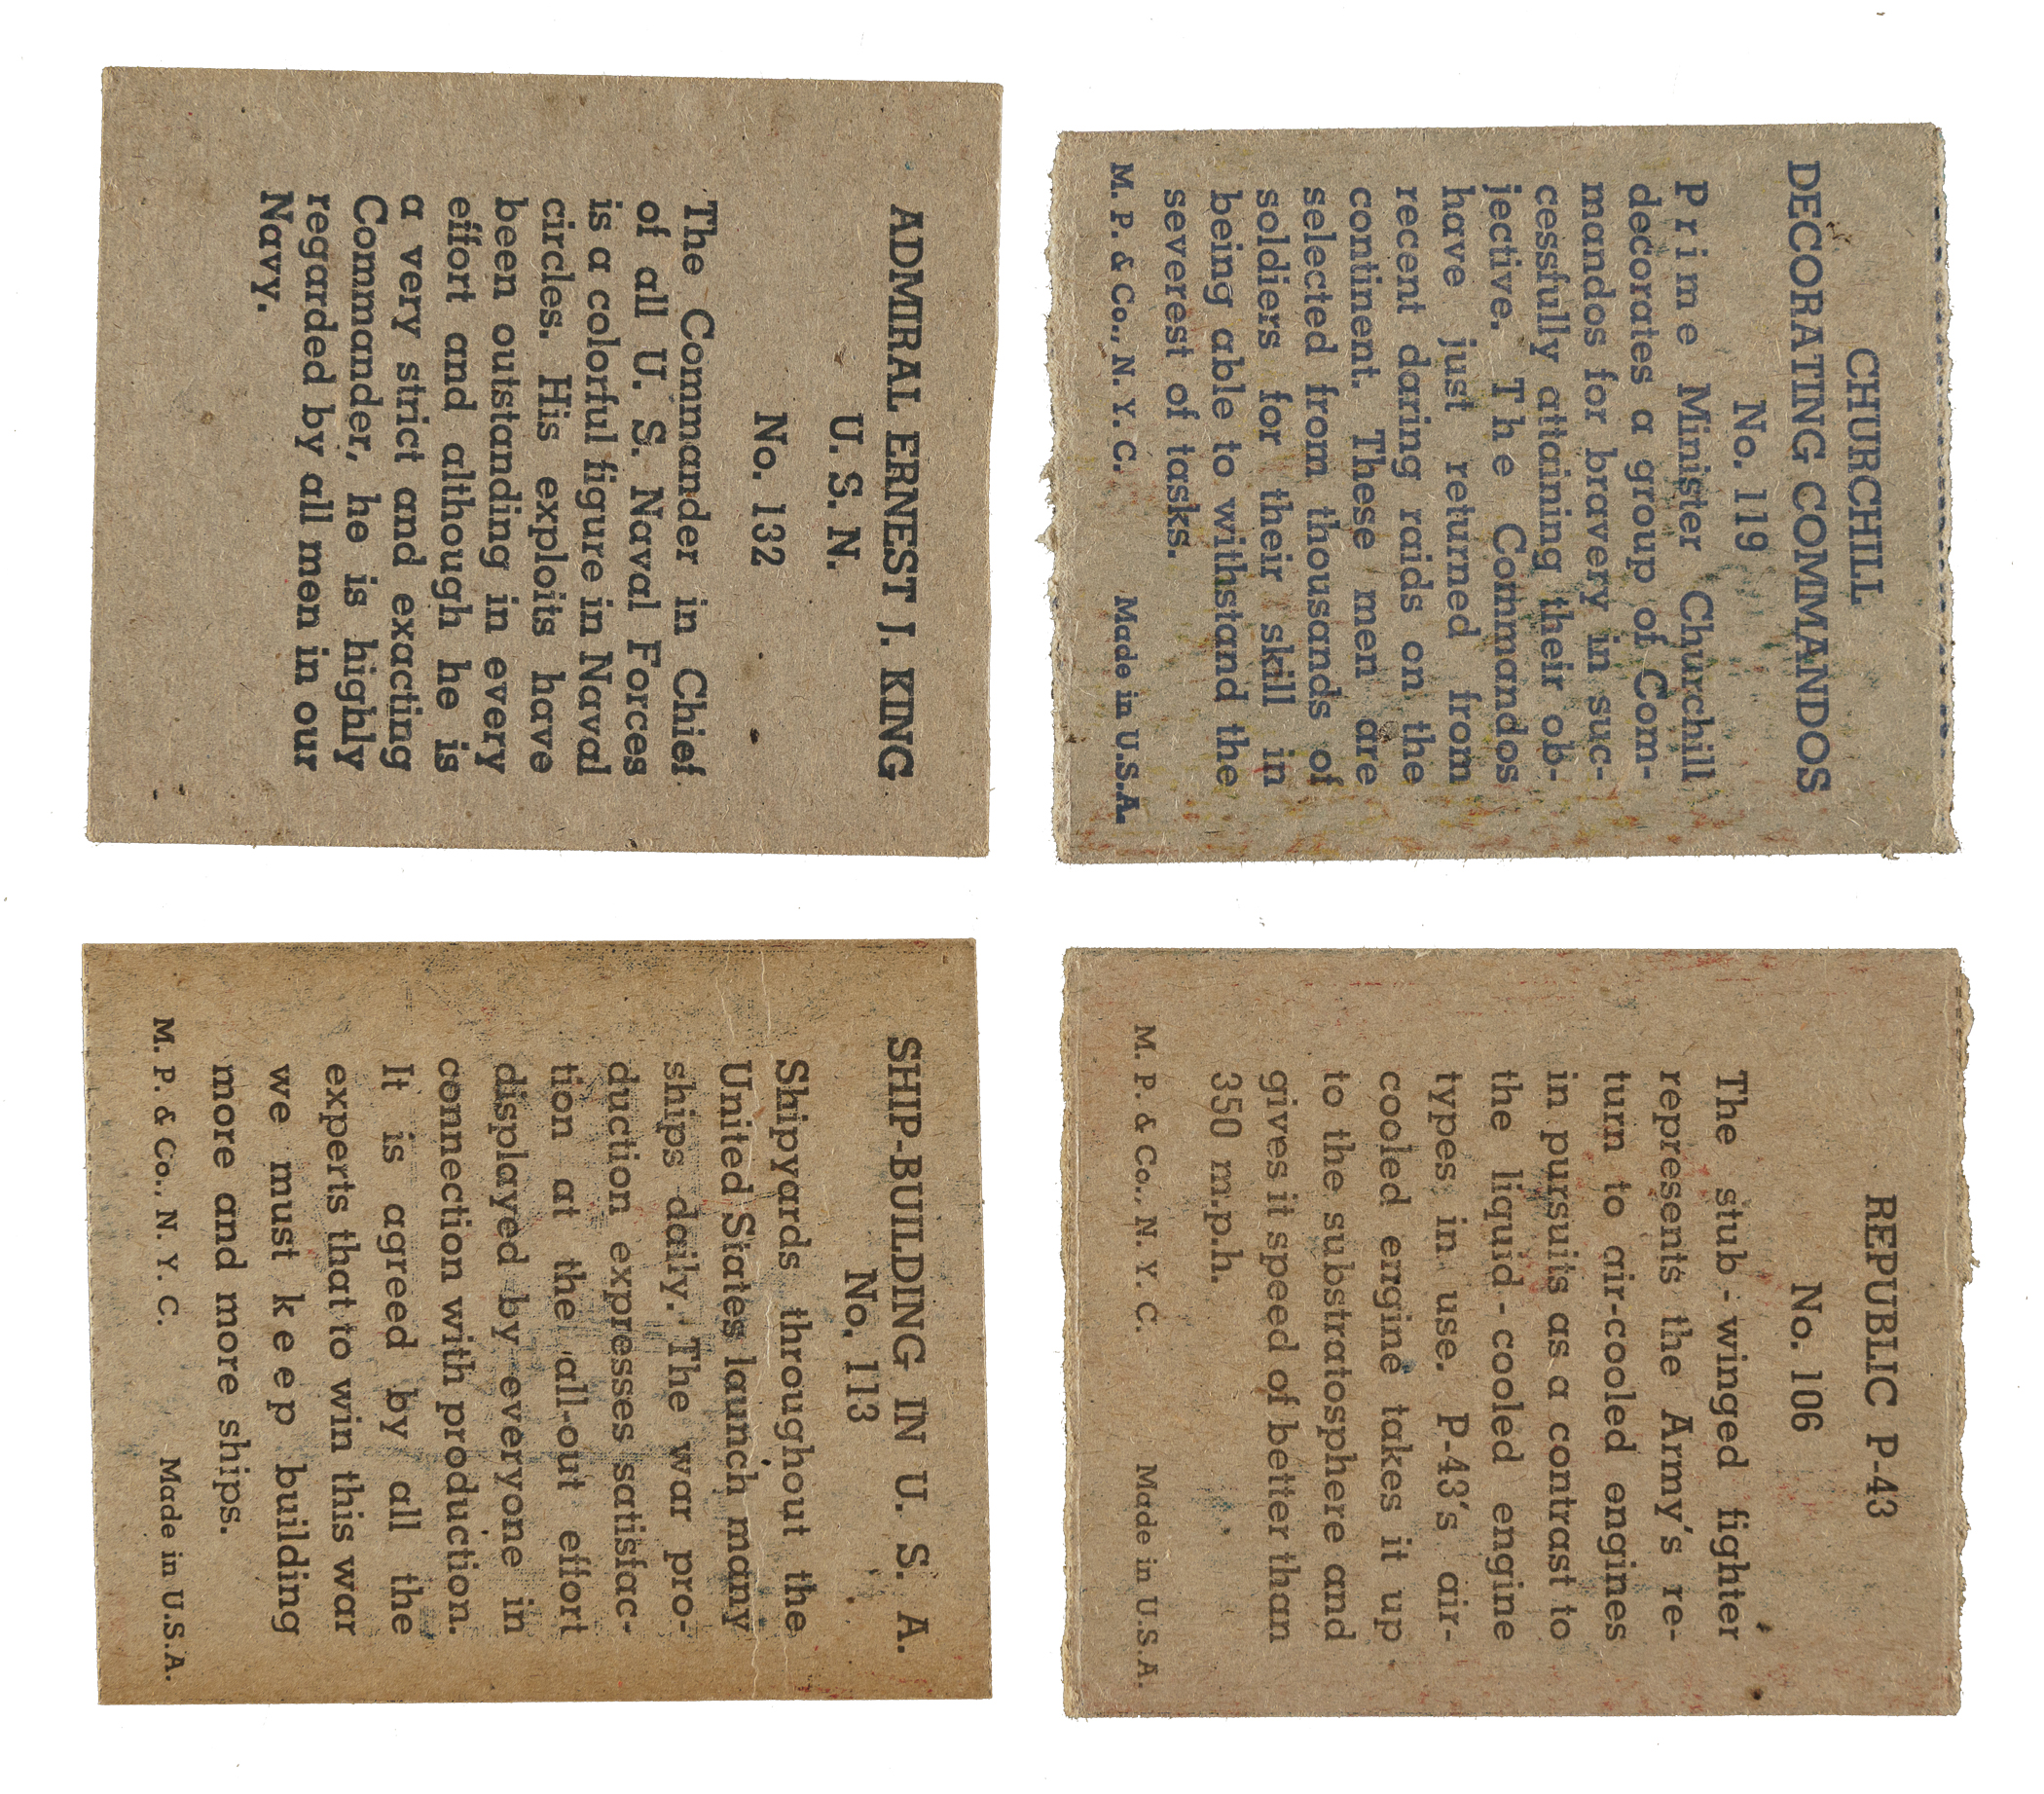 ADMIRAL ERNEST J. KING
U. S. N.
No. 132
The Commander in Chief
of all U. S. Naval Forces
is a colorful figure in Naval
circles. His exploits have
been outstanding in every
effort and although he is
a very strict and exacting
Commander, he is highly
regarded by all men in our
Navy.
CHURCHILL
DECORATING COMMANDOS
No. 119
Prime Minister Churchill
decorates a group of Com-
mandos for bravery in suc-
cessfully attaining their ob-
jective. The Commandos
have just returned from
recent daring raids on the
continent. These men are
selected from thousands of
soldiers for their skill in
being able to withstand the
severest of tasks.
M. P. & Co., N. Y. C. Made in U.S.A.
SHIP-BUILDING IN U. S. A.
No. 113
Shipyards throughout the
United States launch many
ships daily. The war pro-
duction expresses satisfac-
tion at the all-out effort
displayed by everyone in
connection with production.
It is agreed by all the
experts that to win this war
we must keep building
more and more ships.
M. P. & Co., N. Y. C. Made in U.S.A.
REPUBLIC P-43
No. 106
The stub-winged fighter
represents the Army's re-
turn to air-cooled engines
in pursuits as a contrast to
the liquid-cooled engine
types in use. P-43's air-
cooled engine takes it up
to the substratosphere and
gives it speed of better than
350 m.p.h.
M. P. & Co., N. Y. C. Made in U.S.A.